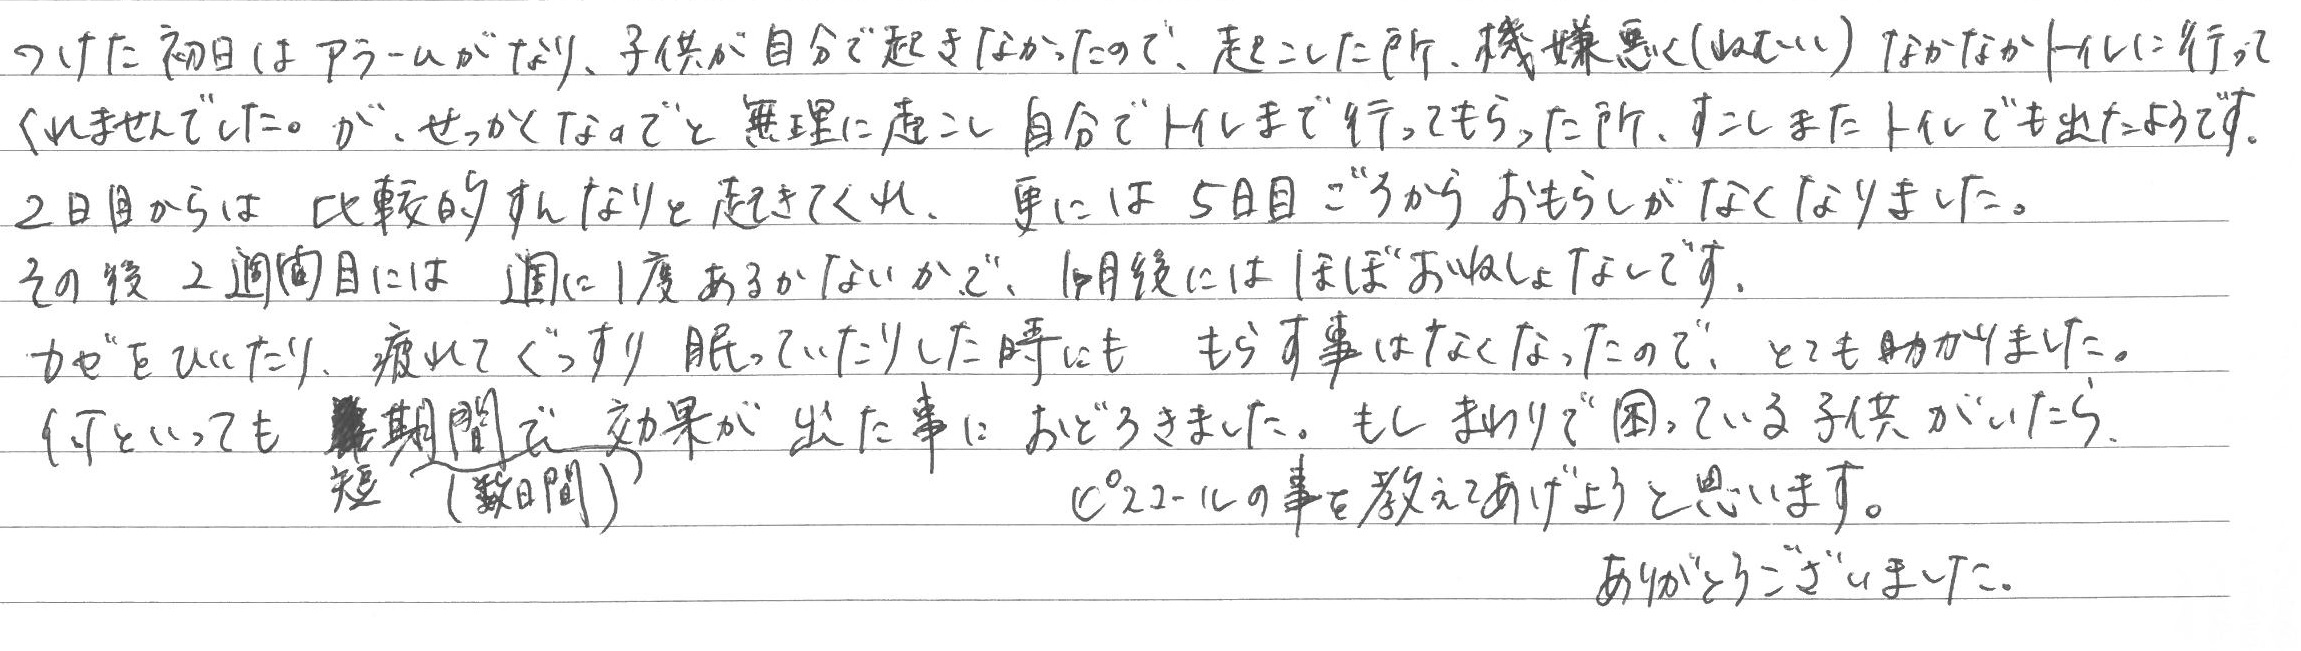 つけた初日はアラームがなり、子供が自分で起きなかったので、起こした所、機嫌悪く(ねむい) なかなかトイレに行って
くれませんでした。が、せっかくなのでと無理に起こし 自分でトイレまで行ってもらった所、すこしまたトイレでも出たようです。
2日目からは 比較的すんなりと起きてくれ、 更には 5日目ごろからおもらしがなくなりました。
その後 2週間目には 週に1度あるかないかで、1ヶ月後にはほぼおねしょなしです。
カゼをひいたり、疲れてぐっすり眠っていたりした時にも もらす事はなくなったので、とても助かりました。
何といっても 短期間で 効果が出た事に おどろきました。もしまわりで困っている子供がいたら、
(数日間)
ピスコールの事を教えてあげようと思います。
ありがとうございました。